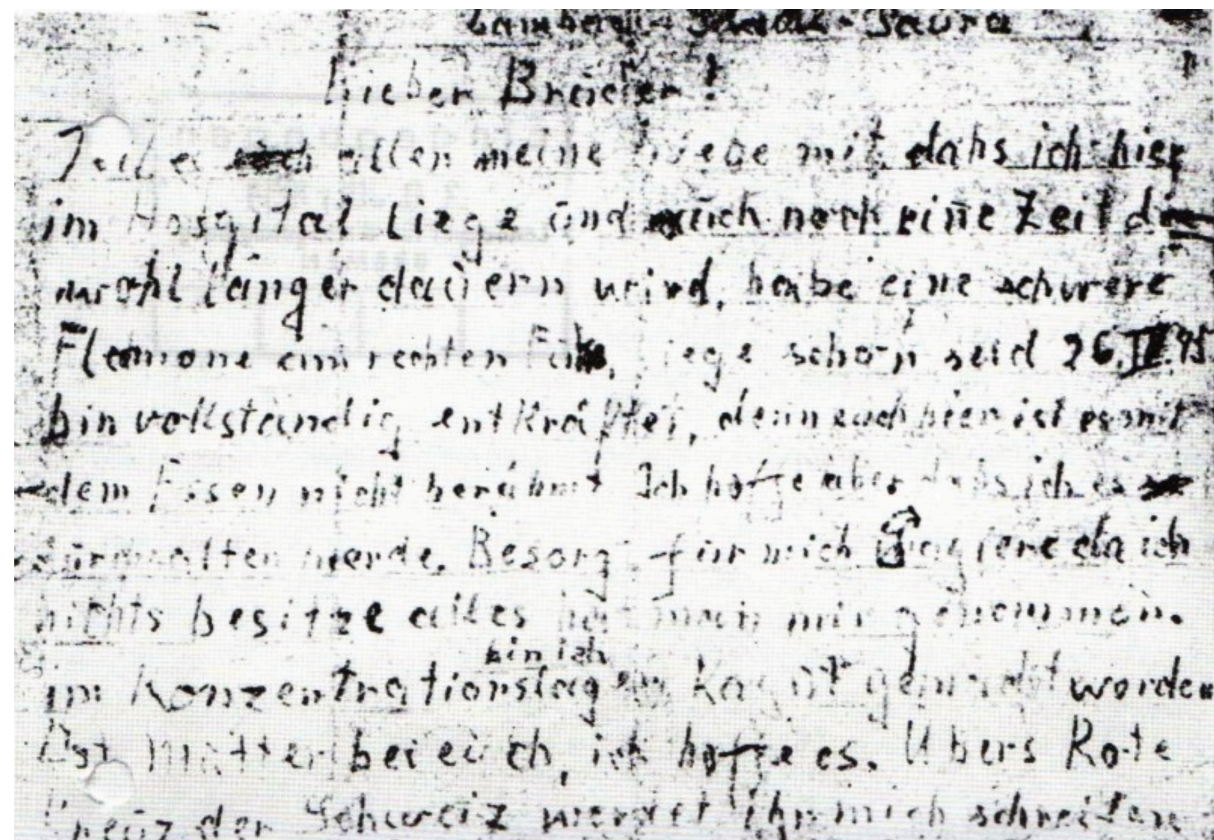 Lieber Brüder!
Teile allen meine Liebe mit dahs ich hier
im Hospital Liege ünd aüch noch eine Zeit die
wohl länger daüern wird, habe eine schwere
Flemone am rechten liege schon seid 26. 45
bin vollständig entkräftet, denn auch hier ist es mit
dem Essen nicht berühmt Ich hoffe aber dahs ich es
dürchhalten werde. Besorg für mich da ich
nichts besitze alles hat man mir genommen.
bin ich
im Konzentrationslager kapüt gemacht worden
Ist Mütter bei eüch, ich hoffe es. Übers Rote
Kreüz der Schweiz werdet ihr mich schreiben